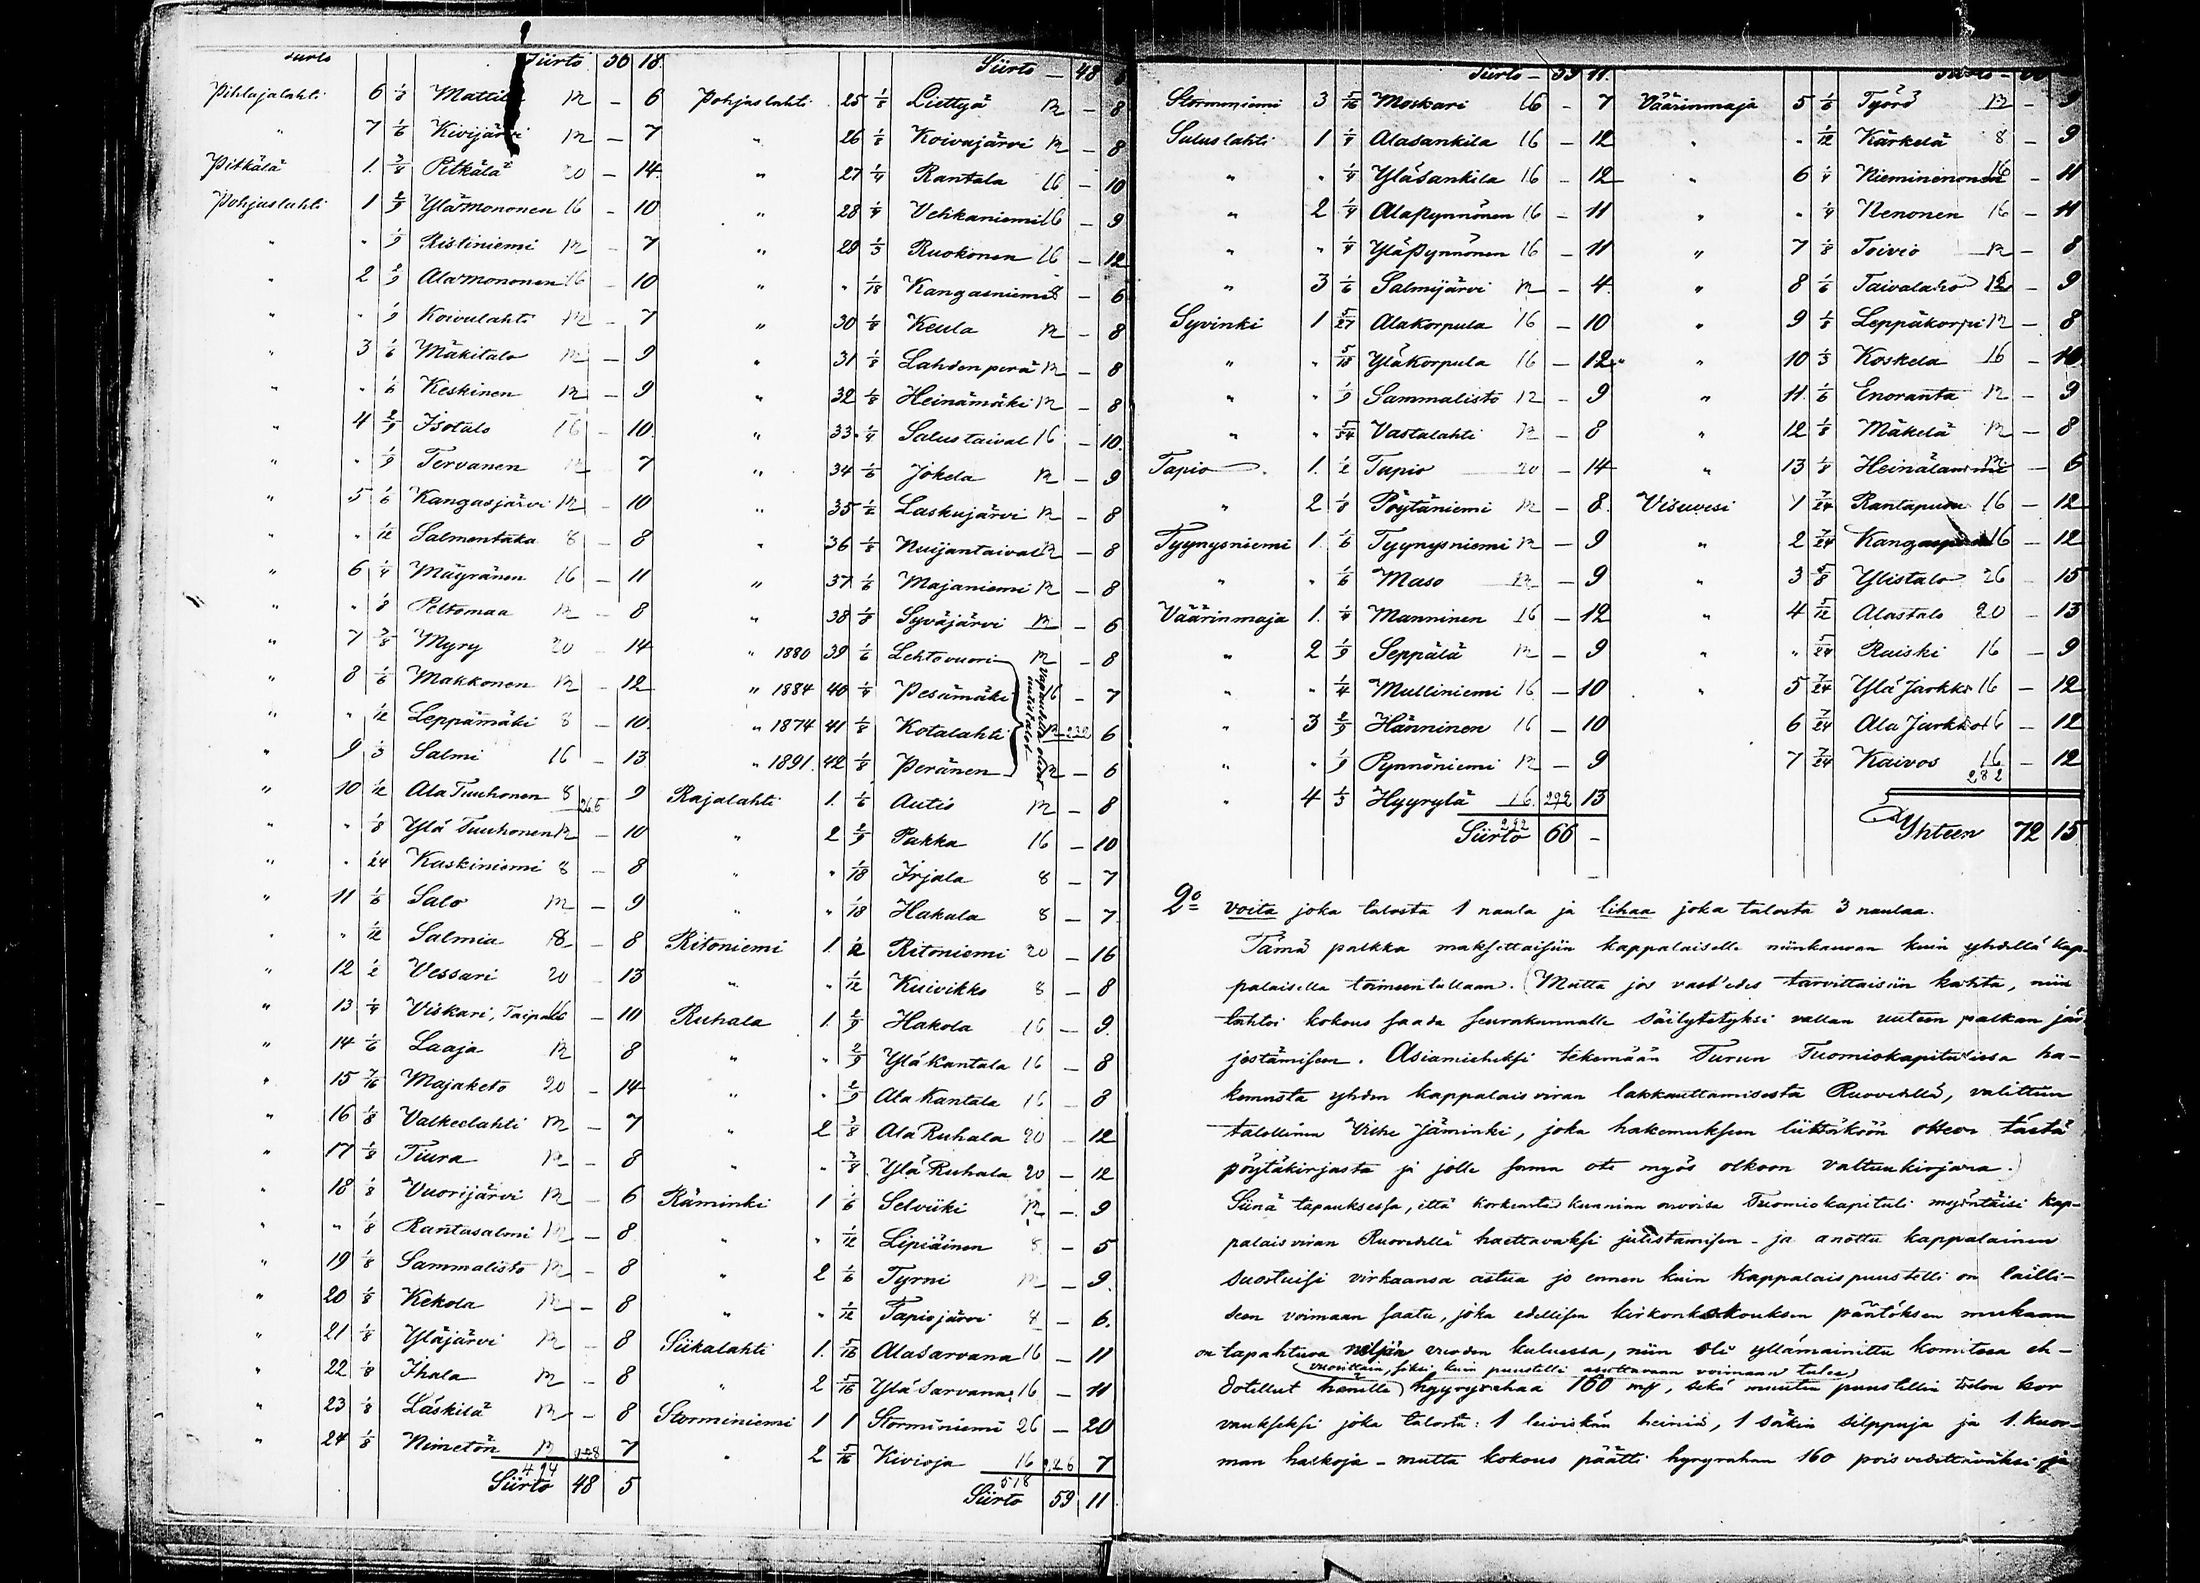 Siirto Siirto 30 18
Pihlajalahti 6 1/8 Mattila 12 – 6
" 7 1/6 Kivijärvi 12 – 7
Pitkälä 1. 3/8 Pitkälä 20 – 14
Pohjuslahti 1 2/9 Ylämononen 16 – 10
" " 1/9 Ristiniemi 12 – 7
" 2 2/9 Alamononen 16 – 10
" " 1/9 Koivulahti 12 – 7
" 3 1/6 Mäkitalo 12 – 9
" " 1/6 Keskinen 12 – 9
" 4 2/9 Isotalo 16 – 10
" " 1/9 Tervanen 12 7
" 5 1/6 Kangasjärvi 12 – 10
" " 1/12 Salmentaka 8 – 8
" 6 1/4 Mäyränen 16 – 11
" " 1/8 Peltomaa 12 – 8
" 7 3/8 Myry 20 – 14
" 8 1/6 Makkonen 12 – 12
" " 1/12 Leppämäki 8 – 10
" 9 1/3 Salmi 16 – 13
" 10 1/12 Ala Tuuhonen 8 9
" " 1/8 Ylä Tuuhonen 12 – 10
" " 1/24 Kaskiniemi 8 – 8
" 11 1/6 Salo 12 – 9
" " 1/12 Salmia 8 – 8
" 12 1/2 Vessari 20 – 13
" 13 1/4 Viskari, Taipale 16 – 10
" 14 1/6 Laaja 12 8
" 15 7/16 Majaketo 20 – 14
" 16 1/8 Valkeelahti 12 – 7
" 17 1/8 Tiura 12 – 8
" 18 1/8 Vuorijärvi 12 – 6
" " 1/8 Rantasalmi 12 – 8
" 19 1/8 Sammalisto 12 – 8
" 20 1/8 Kekola 12 – 8
" 21 1/8 Yläjärvi 12 – 8
" 22 1/8 Ihala 12 – 8
" 23 1/8 Läskilä 12 – 8
" 24 1/8 Nimetön 12 7
494
Siirto 48 5
Siirto – 48
Pohjaslahti 25 1/8 Liettyä 12 – 8
" 26 1/8 Koivujärvi 12 – 8
" 27 1/4 Rantala 16 – 10
" 28 1/4 Vehkaniemi 16 – 9
" 29 1/3 Ruokonen 16 – 12
" " 1/18 Kangasniemi 8 – 6
" 30 1/8 Keula 12 – 8
" 31 1/8 Lahdenperä 12 – 8
" 32 1/8 Heinämäki 12 – 8
" 33 1/4 Salustaival 16 – 10
" 34 1/6 Jokela 12 – 9
" 35 1/8 Laskujärvi 12 – 8
" 36 1/8 Nuijantaival 12 – 8
" 37 1/6 Majaniemi 12 – 8
" 38 1/8 Syväjärvi 12 – 6
" 1880 39 1/6 Lehtovuori 12 – 8
" 1884 40 1/4 Pesämäki 16 – 7
" 1874 41 1/8 Kotalahti 12 232 6
" 1891 42 1/8 Peränen 12 – 6
Rajalahti 1. 1/6 Autio 12 – 8
" 2 2/9 Pakka 16 – 10
" " 1/18 Irjala 8 – 7
" " 1/18 Hakala 8 – 7
Ritoniemi 1. 1/2 Ritoniemi 20 – 16
" " 1/12 Kuivikko 8 – 8
Ruhala 1. 2/9 Hakola 16 – 9
" " 2/9 Ylä Kantala 16 – 8
" " 2/9 Ala Kantala 16 – 8
" 2 3/8 Ala Ruhala 20 – 12
" " 3/8 Ylä Ruhala 20 – 12
Räminki 1 1/6 Selviiki 12 – 9
" " 1/12 Lipiäinen 8 – 5
" 2 1/6 Tyrni 12 – 9
" " 1/12 Tapiojärvi 8 – 6
Siikalahti 1. 5/16 Ala Sarvana 16 – 11
" 2 5/16 Ylä Sarvana 16 – 11
Storminiemi 1 1 Storminiemi 26 – 20
" 2 5/16 Kivioja 16 226 7
518
Siirto 59 11
Siirto – 59 11
Storminiemi 3 5/16 Moskari 16 – 7
Saluslahti 1 1/4 Alasankila 16 – 12
" " 1/4 Yläsankila 16 – 12
" 2 1/4 Alapynnönen 16 – 11
" " 1/4 Yläpynnönen 16 – 11
" 3 1/6 Salmijärvi 12 – 4
Syvinki 1 5/27 Alakorpula 16 – 10
" " 5/18 Yläkorpula 16 – 12
" " 1/9 Sammalisto 12 – 9
" " 5/54 Vastalahti 12 – 8
Tapio 1. 1/2 Tapio 20 – 14
" 2 1/8 Pöytäniemi 12 – 8
Tyynysniemi 1. 1/6 Tyynysniemi 12 – 9
" " 1/6 Maso 12 – 9
Väärinmaja 1. 1/4 Manninen 16 – 12
" 2 1/9 Seppälä 12 – 9
" " 1/4 Mulliniemi 16 – 10
" 3 2/9 Hänninen 16 – 10
" " 1/9 Pynnöniemi 12 – 9
" 4 1/3 Hyyrylä 16 292 13
292
Siirto 66 –
Siirto –
Väärinmaja 5 1/6 Työrö 12 – 9
" " 1/12 Kärkelä 8 – 9
" 6 1/4 Nieminenonen 16 – 11
" " 1/4 Nenonen 16 – 11
" 7 1/8 Toivio 12 – 8
" 8 1/6 Taivalaho 12 – 9
" 9 1/8 Leppäkorpi 12 – 8
" 10 1/3 Koskela 16 – 10
" 11 1/6 Enoranta 12 – 9
" 12 1/8 Mäkelä 12 – 8
" 13 1/8 Heinälammi 12 – 6
Visuvesi 1 7/24 Rantapusu 16 – 12
" 2 7/24 16 – 12
" 3 5/8 Ylistalo 26 – 15
" 4 5/12 Alastalo 20 – 13
" " 5/24 Raiski 16 – 9
" 5 7/24 Ylä Jarkko 16 – 12
6 7/24 Ala Jarkko 16 – 12
7 7/24 Kaivos 16 – 12
282
Yhteen 72 15
2o voita joka talosta 1 naula ja lihaa joka talosta 3 naulaa.
Tämä palkka maksettaisiin kappalaiselle niinkauvan kuin yhdellä kap-
palaisella toimeentullaan. (Mutta jos vast'edes tarvittaisiin kahta, niin
tahtoi kokous saada seurakunnalle säilytetyksi vallan uuteen palkan jär
jestämiseen. Asiamieheksi tekemään Turun Tuomiokapitulissa ha-
kemusta yhden kappalaisviran lakkauttamisesta Ruovedellä, valittiin
talollinen Vihe Jäminki, joka hakemukseen liittäköön otteen tästä
pöytäkirjasta ja jolle sama ote myös olkoon valtuuskirjana.)
Siinä tapauksessa, että korkeasti kunnian arvoisa Tuomiokapituli myöntäisi kap-
palaisviran Ruovedellä haettavaksi julistamisen – ja anottu kappalainen
suostuisi virkaansa astua jo ennen kuin kappalaispuustelli on lailli-
seen voimaan saatu, joka edellisen kirkonkokouksen päätöksen mukaan
on tapahtuva neljän vuoden kuluessa, niin oli yllämainittu komitea eh-
(vuosittain, siksi kuin puustelli asuttavaan voimaan tulee)
dotellut hänelle hyyryrahaa 160 mk, sekä muuten puustellin tulon kor
vaukseksi joka talosta: 1 leiviskän heiniä, 1 säkin silppuja ja 1 kuor-
man halkoja – mutta kokous päätti hyyryrahan 160 pois vedettäväksi ja